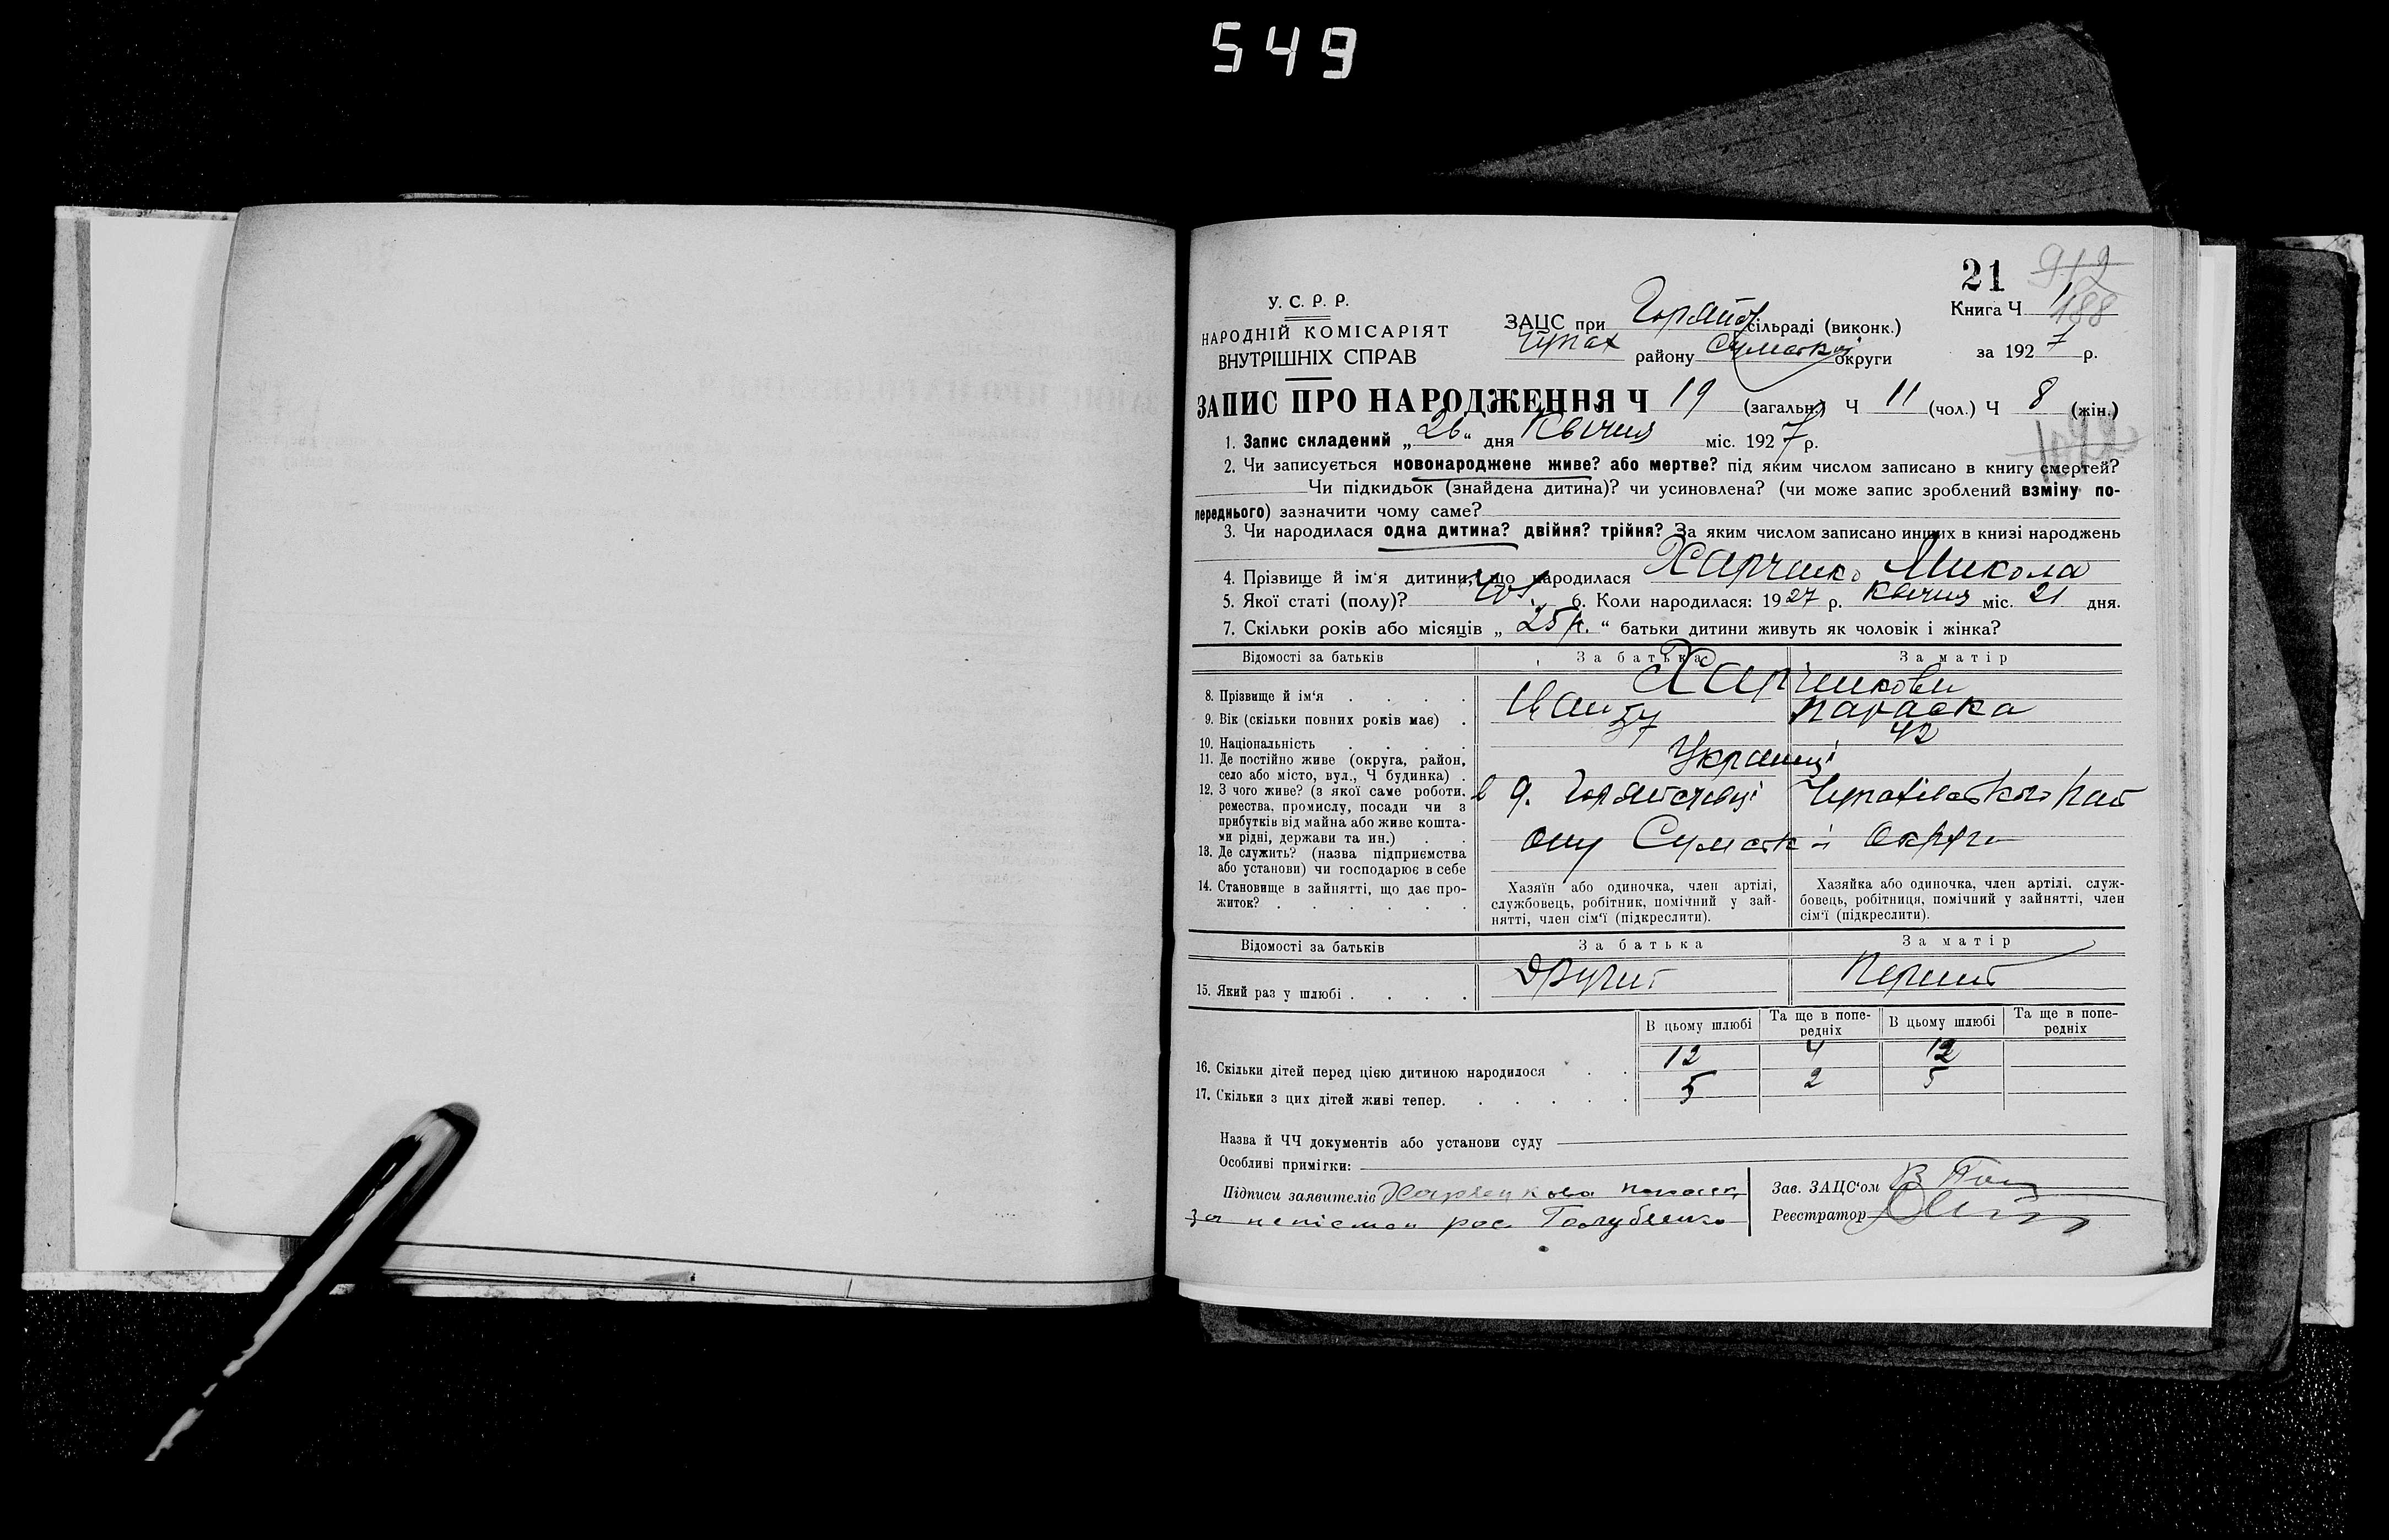 549
21
912
У. С. Р. Р.
НАРОДНІЙ КОМІСАРІЯТ
ВНУТРІШНІХ СПРАВ
ЗАЦС при сільраді (виконк.)
Чупах району Сумської округи
Книга Ч 1
188
за 1927 р.
ЗАПИС ПРО НАРОДЖЕННЯ Ч 19 (загальн.) Ч 11 (чол.) Ч 8 (жін.)
1. Запис складений „26“ дня Квітня міс. 1927 р.
2. Чи записується новонароджене живе? або мертве? під яким числом записано в книгу смертей?
Чи підкидьок (знайдена дитина)? чи усиновлена? (чи може запис зроблений взміну по-
переднього) зазначити чому саме?
3. Чи народилася одна дитина? двійня? трійня? За яким числом записано инших в книзі народжень
4. Прізвище й ім‘я дитини, що народилася Харченко Микола
5. Якої статі (полу)? чол. 6. Коли народилася: 1927 р. Квітня міс. 21 дня.
7. Скільки років або місяців „25 р.“ батьки дитини живуть як чоловік і жінка?
Відомості за батьків За батька За матір
Харченкови
8. Прізвище й ім‘я . . . . Иван Параска
9. Вік (скільки повних років має) . 57 42
10. Національність . . . . Українці
11. Де постійно живе (округа, район,
село або місто, вул., Ч будинка) .
12. З чого живе? (з якої саме роботи,
ремества, промислу, посади чи з
прибутків від майна або живе кошта-
ми рідні, держави та ин.) . .
ону Сумськ і Округи
13. Де служить? (назва підприємства
або установи) чи господарює в себе
14. Становище в зайнятті, що дає про-
житок? . . . . . .
Хазяїн або одиночка, член артілі,
службовець, робітник, помічний у зай-
нятті, член сім‘ї (підкреслити).
Хазяйка або одиночка, член артілі, служ-
бовець, робітниця, помічний у зайнятті, член
сім‘ї (підкреслити).
Відомості за батьків За батька За матір
15. Який раз у шлюбі . . . . Другий Перший
В цьому шлюбі Та ще в попе-
редніх В цьому шлюбі Та ще в попе-
редніх
16. Скільки дітей перед цією дитиною народилося . . 12 4 12
17. Скільки з цих дітей живі тепер. . . . . . 5 2 5
Назва й ЧЧ документів або установи суду
Особливі примітки:
Підписи заявителів Харченкова Параск
за неписмен рос Голубенко
Зав. ЗАЦС‘ом
Реестратор